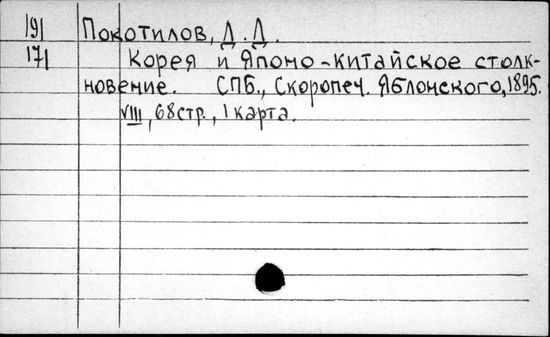 191 Покотилов, Д.Д.
171 Корея и Японо-китайское столк-
новение. СПБ., Скоропеч. Яблонского, 1895.
VIII, 68 стр., 1 карта.